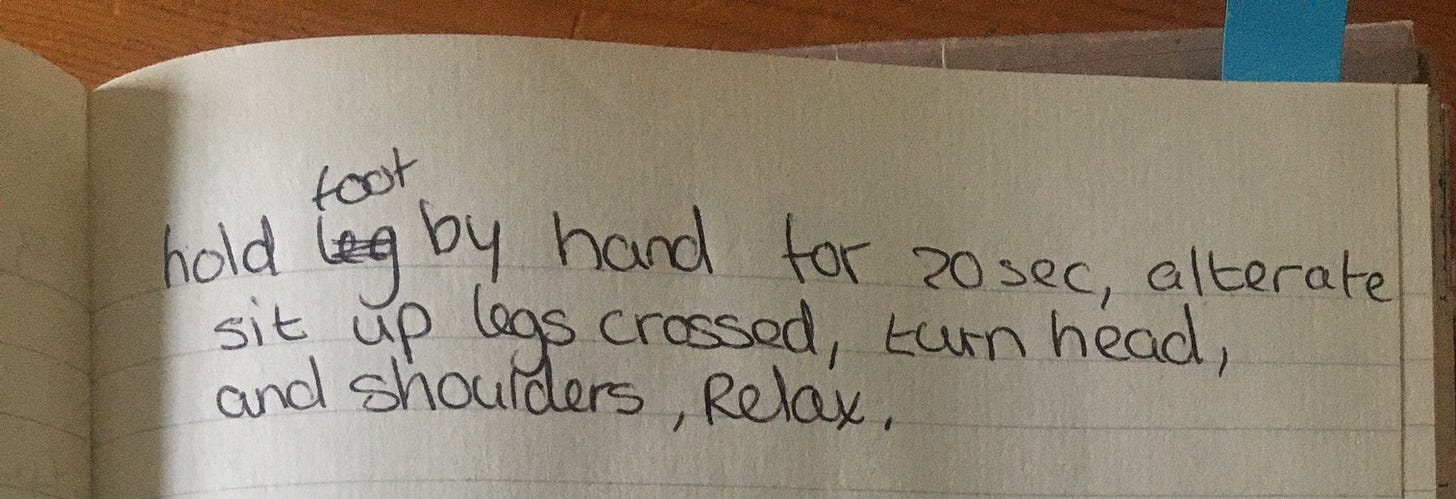 foot
hold leg by hand for 20 sec, alterate
sit up legs crossed, turn head,
and shoulders, Relax.